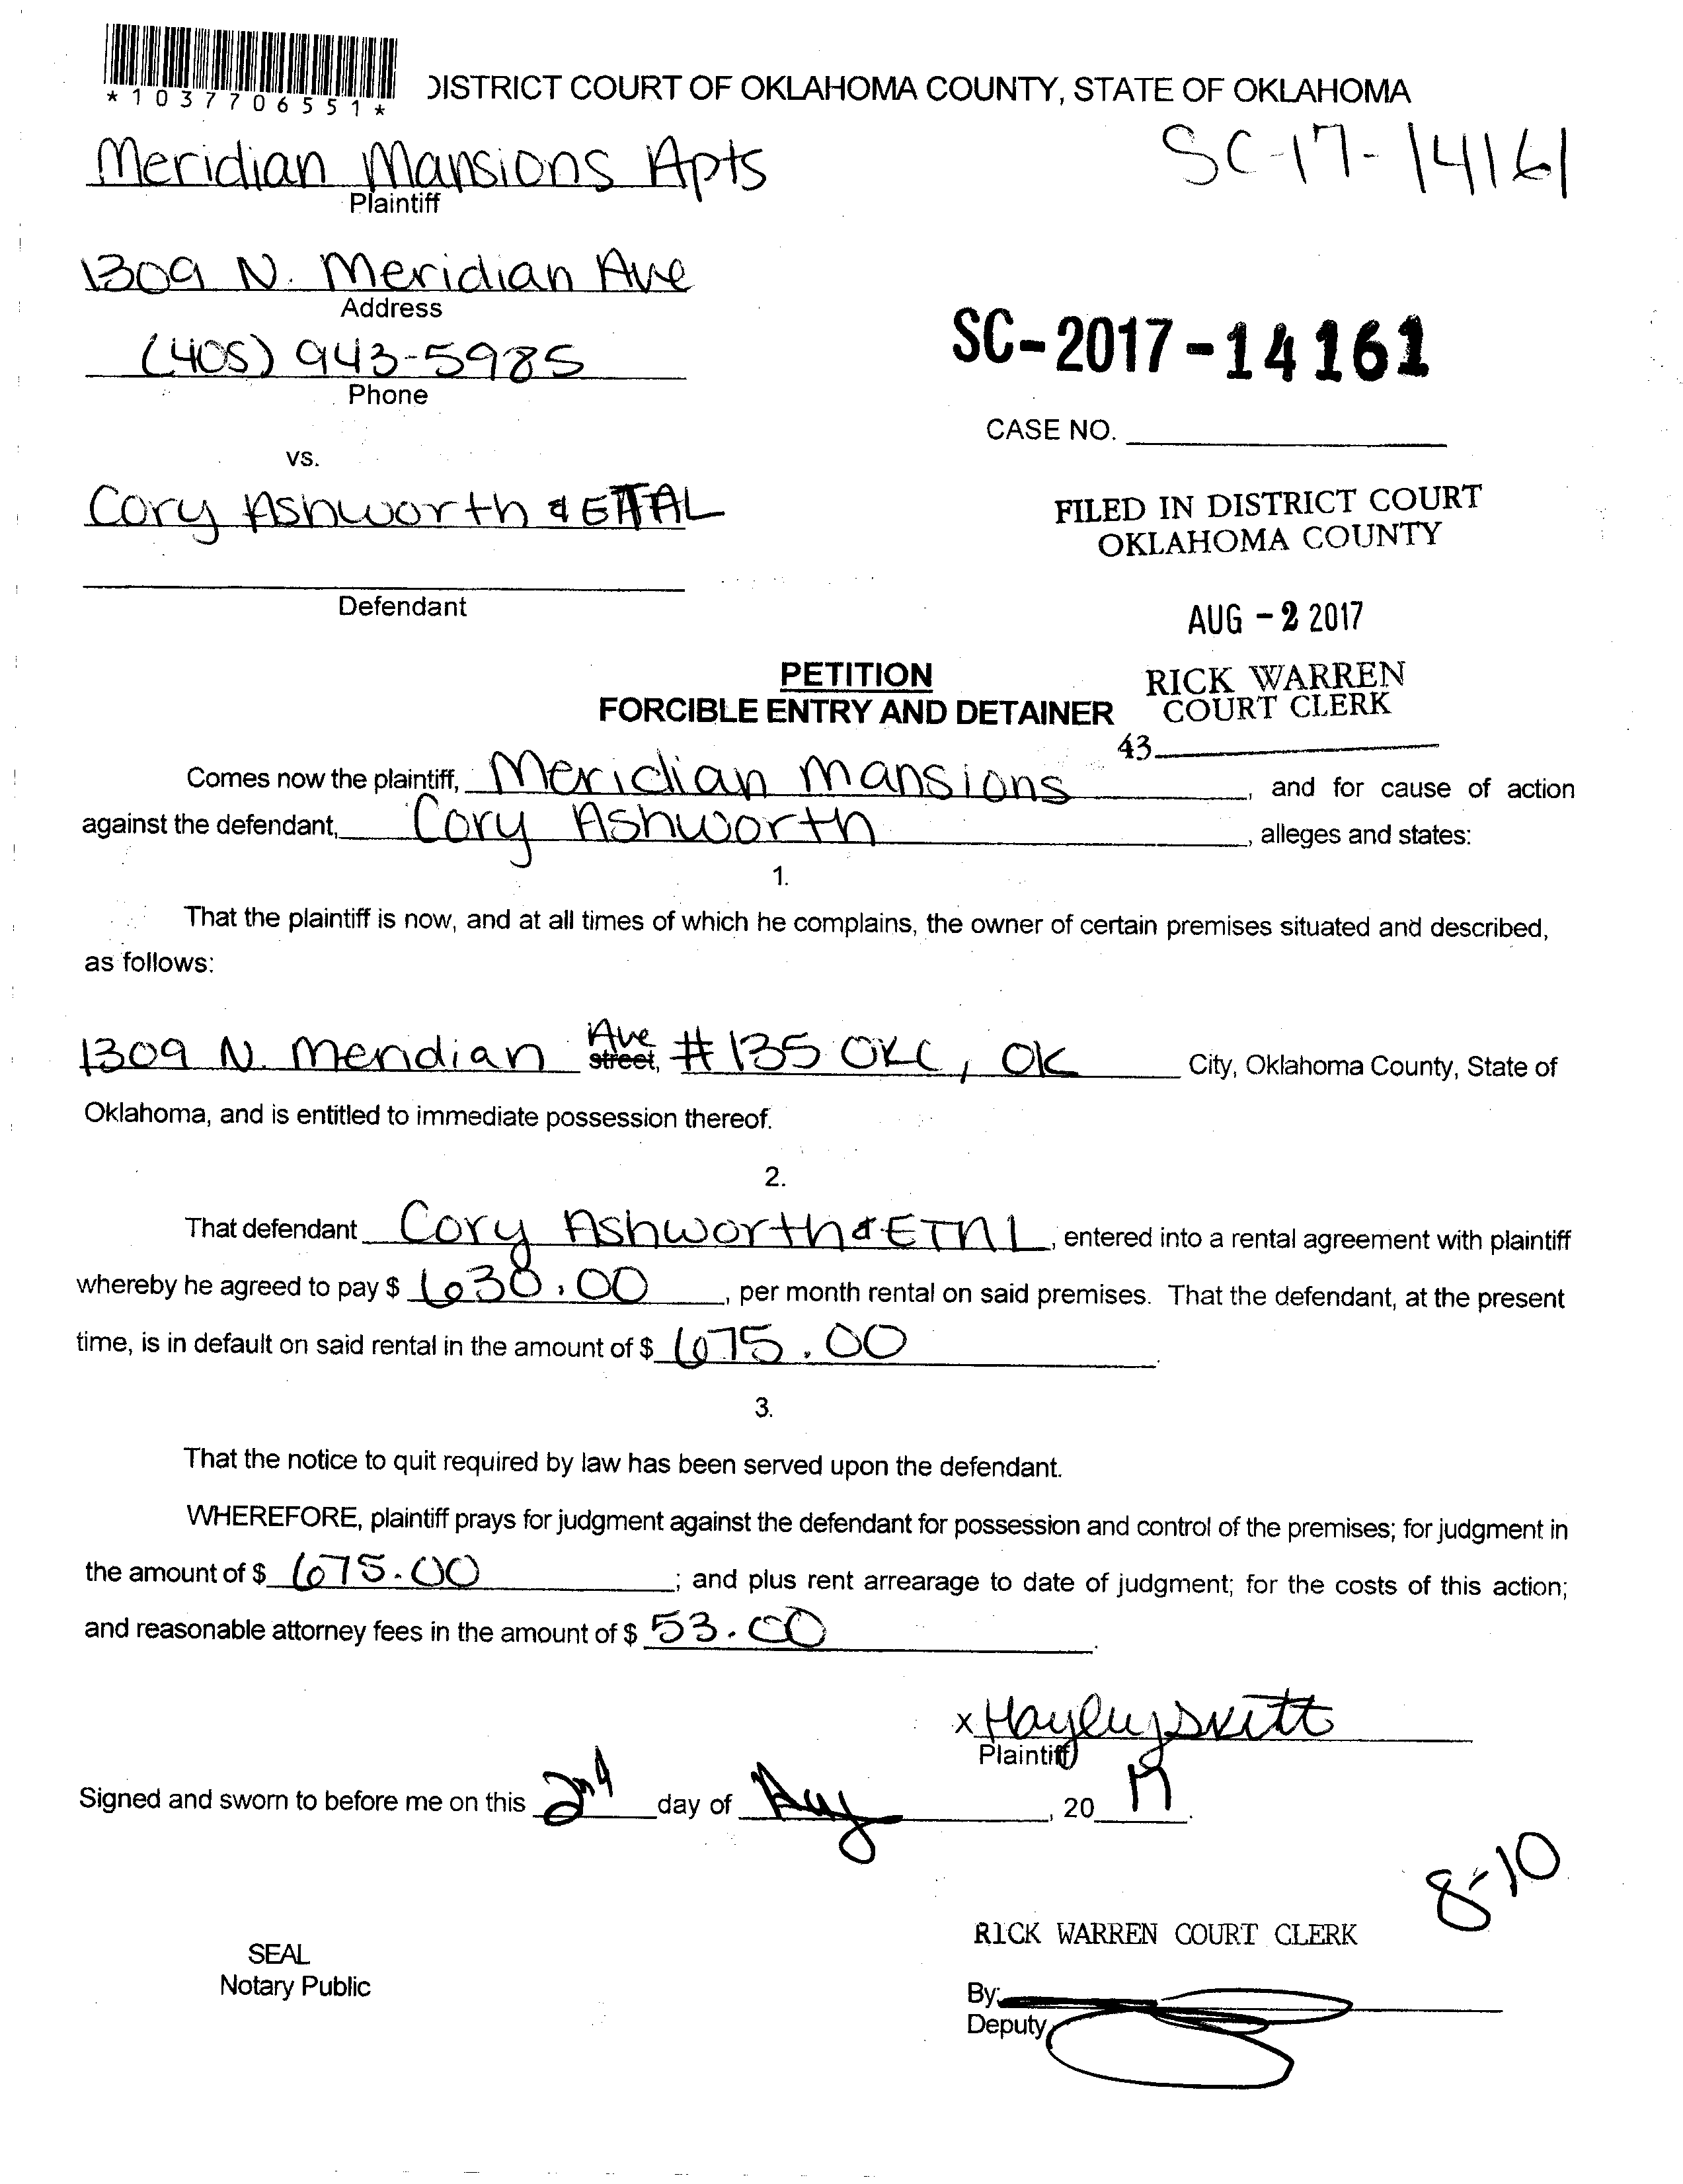 *1037706551*
DISTRICT COURT OF OKLAHOMA COUNTY, STATE OF OKLAHOMA
Meridian Mansions Apts
Plaintiff
SC-17-14161
1309 N. Meridian Ave
Address
(405) 943-5985
Phone
SC-2017-14161
CASE NO.
vs.
Cory Ashworth & ETAL
Defendant
FILED IN DISTRICT COURT
OKLAHOMA COUNTY
AUG -2 2017
RICK WARREN
COURT CLERK
43
PETITION
FORCIBLE ENTRY AND DETAINER
Comes now the plaintiff, Meridian Mansions, and for cause of action
against the defendant, Cory Ashworth, alleges and states:
1.
That the plaintiff is now, and at all times of which he complains, the owner of certain premises situated and described,
as follows:
1309 N. Meridian Ave street, #135 OKC, OK City, Oklahoma County, State of
Oklahoma, and is entitled to immediate possession thereof.
2.
That defendant Cory Ashworth & ETAL, entered into a rental agreement with plaintiff
whereby he agreed to pay $ 630.00, per month rental on said premises. That the defendant, at the present
time, is in default on said rental in the amount of $ 675.00.
3.
That the notice to quit required by law has been served upon the defendant.
WHEREFORE, plaintiff prays for judgment against the defendant for possession and control of the premises; for judgment in
the amount of $ 675.00; and plus rent arrearage to date of judgment; for the costs of this action;
and reasonable attorney fees in the amount of $ 53.00.
x Hayley
Plaintiff
Signed and sworn to before me on this 2nd day of Aug, 2017.
8-10
RICK WARREN COURT CLERK
SEAL
Notary Public
By:
Deputy